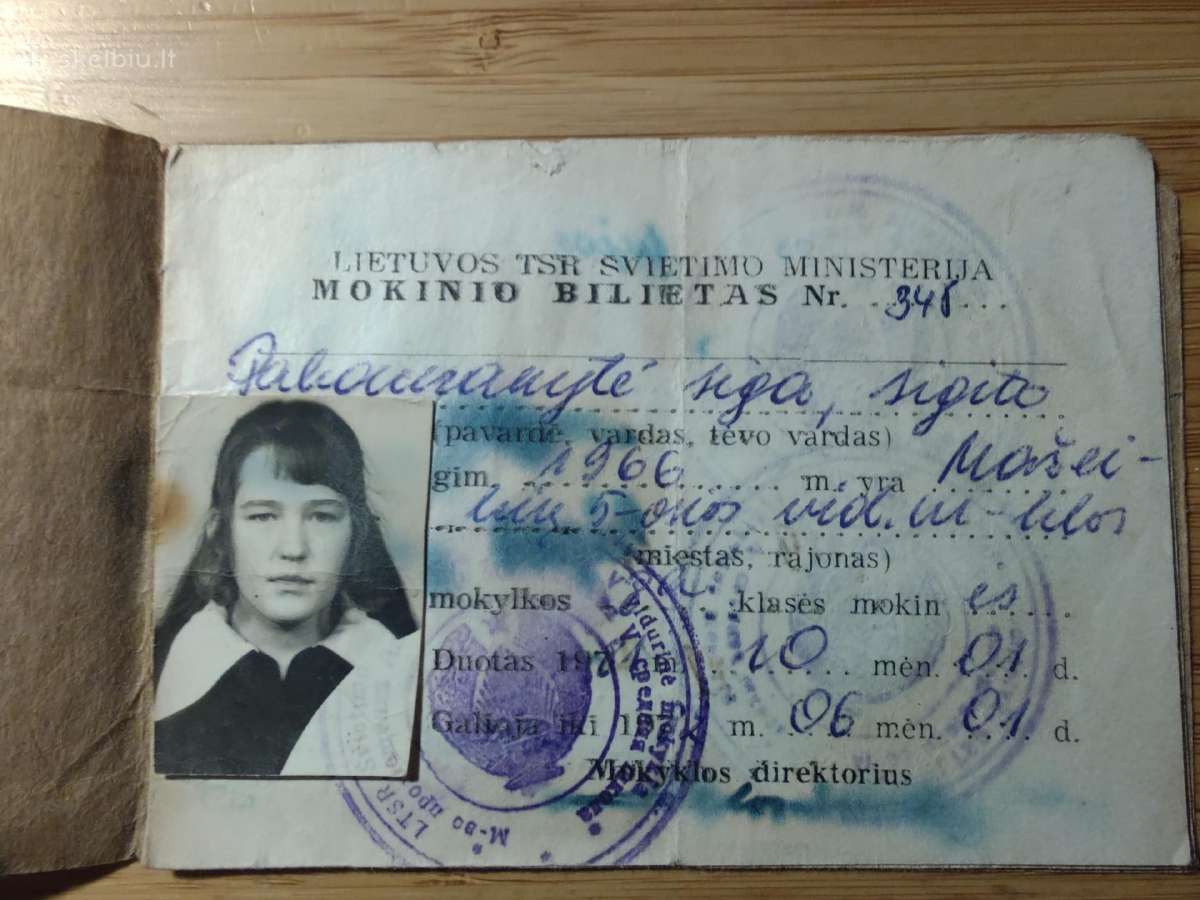 skelbiu.lt
LIETUVOS TSR ŠVIETIMO MINISTERIJA
MOKINIO BILIETAS Nr. 348
sigita, sigito
(pavardė, vardas, tėvo vardas)
gim. 1966 m. yra Mažei-
kių 5-os vid. m-klos
(miestas, rajonas)
mokylkos klasės mokin ės
Duotas 197 m. 10 mėn. 01 d.
Galioja iki 197 m. 06 mėn. 01 d.
Mokyklos direktorius
LTSR
vidurinė mokykla
М-во про
средняя школа